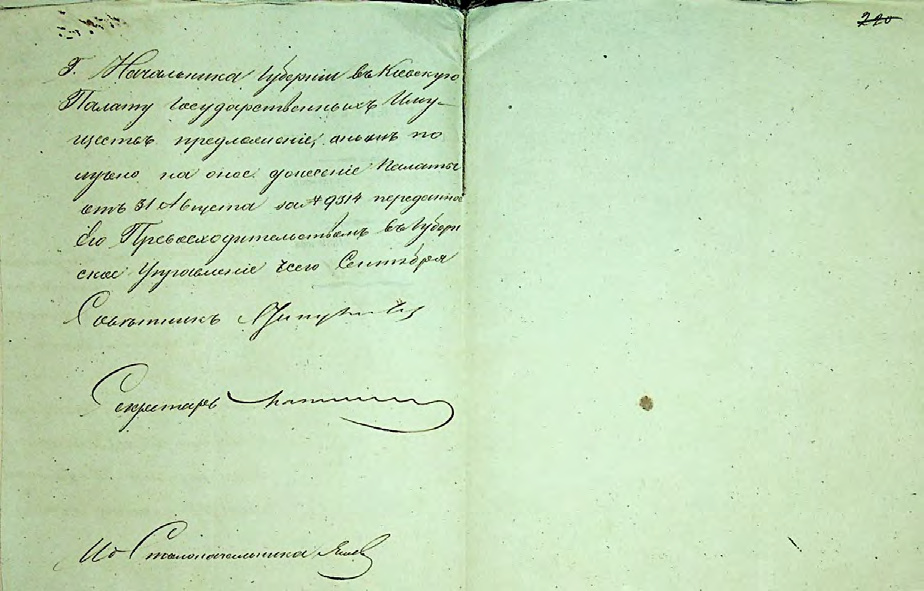 220
Г. Начальника Губерніи въ Кіевскую
Палату Государственныхъ Иму-
ществъ предложеніе, по
лучено на оное донесеніе Палаты
отъ 31 Августа за № 9314 переданное
Его Превосходительствомъ въ Губерн
ское Управленіе Сентября
Совѣтникъ
Секретарь
Ид Столоначальника